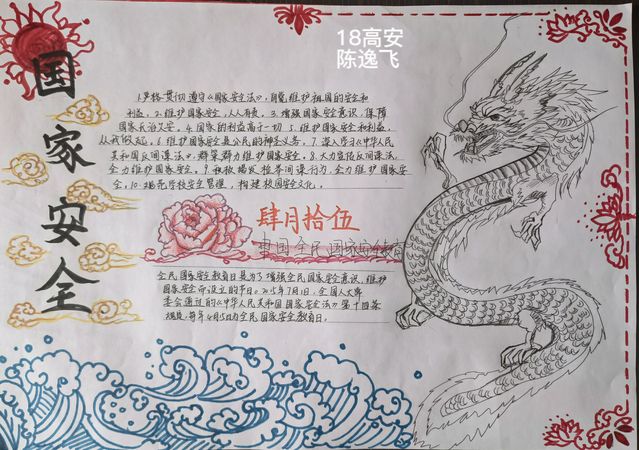 18高安
陈逸飞
国家安全
1.严格贯彻遵守《国家安全法》，自觉维护祖国的安全和
利益。2.维护国家安全，人人有责。3.增强国家安全意识，保障
国家长治久安。4.国家的利益高于一切。5.维护国家安全和利益，
从我做起。6.维护国家安全是公民的神圣义务。7.深入学习《中华人民
共和国反间谍法》，群策群力维护国家安全。8.大力宣传反间谍法，
全力维护国家安全。9.积极揭发检举间谍行为，全力维护国家安
全。10.规范学校安全管理，构建校园安全文化。
肆月拾伍
中国全民国家安全教育
全民国家安全教育日是为了增强全民国家安全意识，维护
国家安全而设立的节日。2015年7月1日，全国人大常
委会通过的《中华人民共和国国家安全法》第十四条
规定，每年4月15日为全民国家安全教育日。